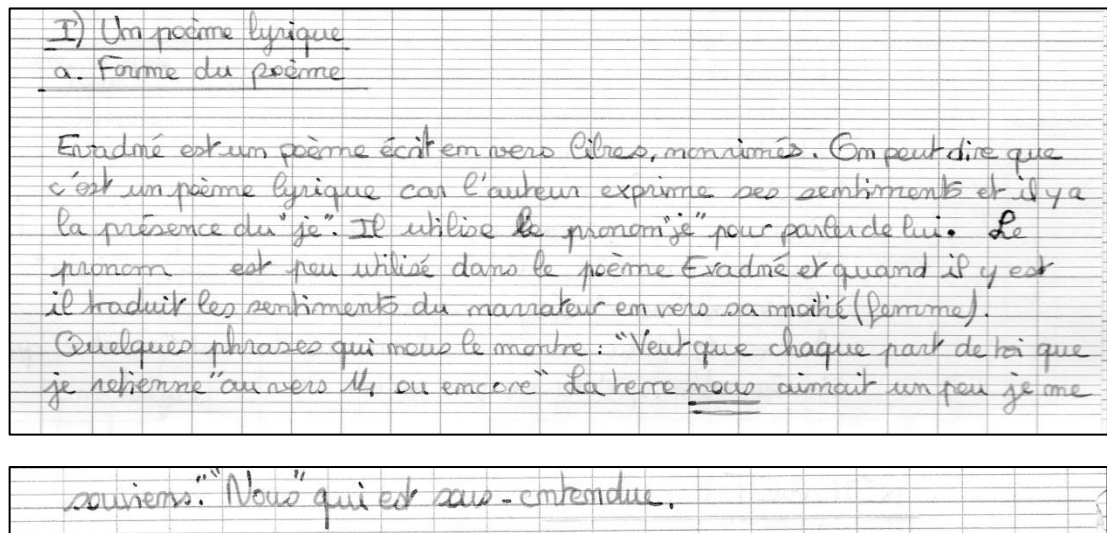 I) Un poème lyrique
a. Forme du poème
Evadné est un poème écrit en vers libres, non rimés. On peut dire que
c'est un poème lyrique car l'auteur exprime ses sentiments et il y a
la présence du "je". Il utilise le pronom "je" pour parler de lui. Le
pronom est peu utilisé dans le poème Evadné et quand il y est
il traduit les sentiments du narrateur en vers sa moitié (femme).
Quelques phrases qui nous le montre : "Veut que chaque part de toi que
je retienne" au vers 14 ou encore "La terre nous aimait un peu je me
souviens." "Nous" qui est sous-entendue.